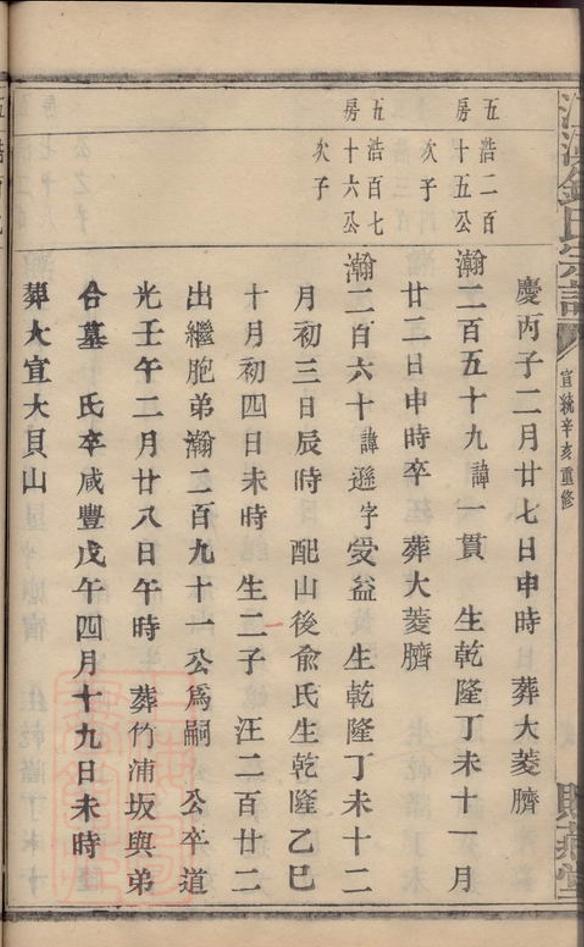 氏宗譜
宣統辛亥重修
慶丙子二月廿七日申時 葬大菱臍
五房
浩二百十五公
次子
瀚二百五十九諱一貫 生乾隆丁未十一月
廿二日申時卒 葬大菱臍
五房
浩百七十六公
次子
瀚二百六十諱遜字受益 生乾隆丁未十二
月初三日辰時 配山後俞氏生乾隆乙巳
十月初四日未時 生二子 汪二百廿二
出繼胞弟瀚二百九十一公爲嗣 公卒道
光壬午二月廿八日午時 葬竹浦坂與弟
合墓 氏卒咸豐戊午四月十九日未時
葬大宜大貝山